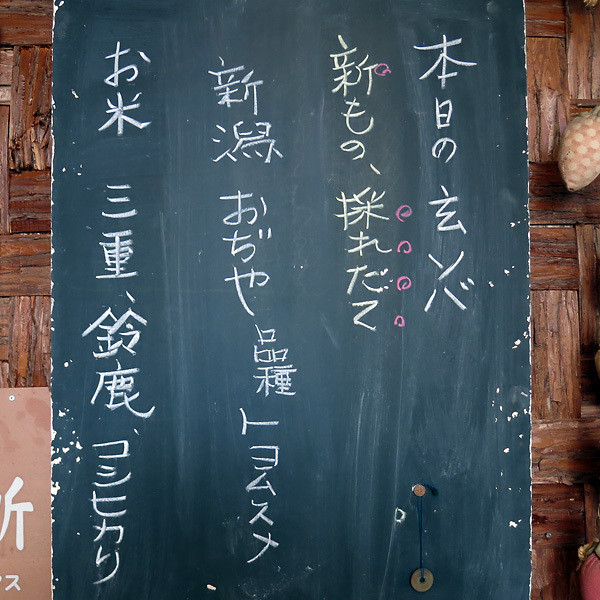 本日の 玄ソバ
新もの、採れだて
新潟 おぢや 品種 トヨムスメ
お米 三重、鈴鹿、コシヒカリ